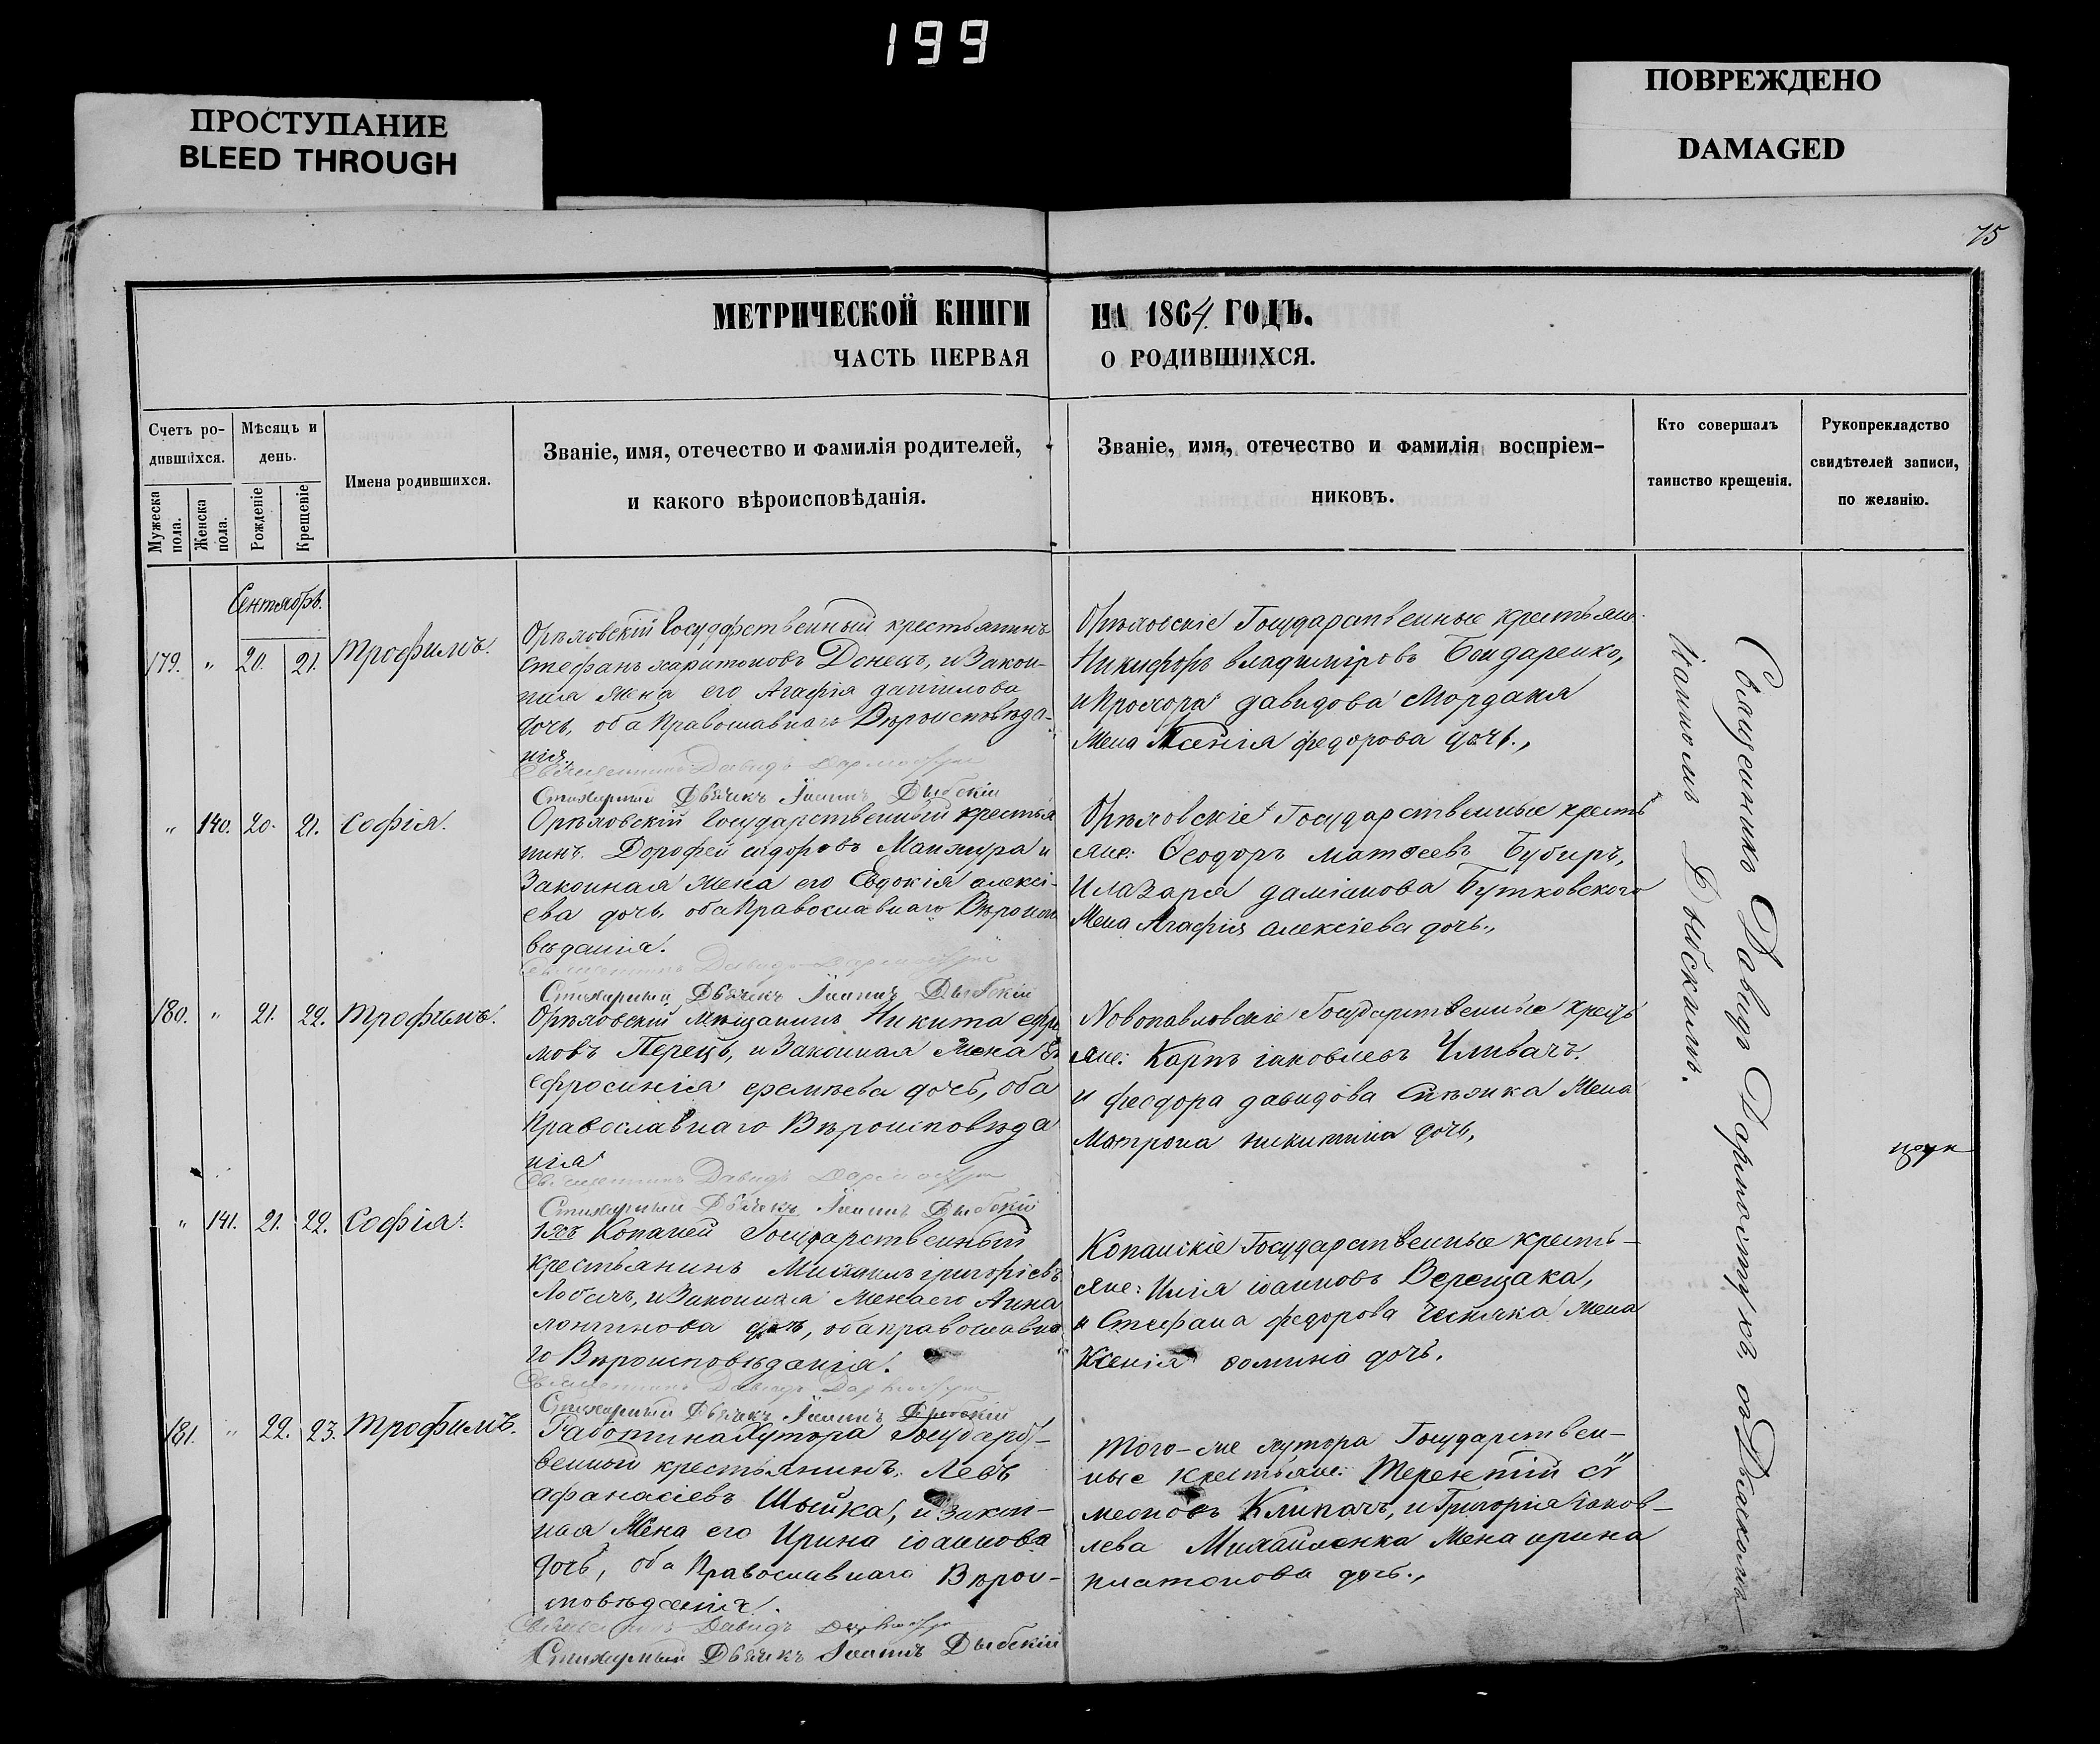 199
ПРОСТУПАНИЕ
BLEED THROUGH
ПОВРЕЖДЕНО
DAMAGED
75
МЕТРИЧЕСКОЙ КНИГИ НА 1864 ГОДЪ.
ЧАСТЬ ПЕРВАЯ О РОДИВШИХСЯ.
Счетъ ро-
дившихся.
Мужеска пола.
Женска пола.
Мѣсяцъ и
день.
Рожденіе
Крещеніе
Имена родившихся.
Званіе, имя, отечество и фамилія родителей,
и какого вѣроисповѣданія.
Званіе, имя, отечество и фамилія воспріем-
никовъ.
Кто совершалъ
таинство крещенія.
Рукоприкладство
свидѣтелей записи,
по желанію.
Сентябрь.
179. " 20. 21. Трофимъ.
Орѣховскій Государственный крестьянинъ
Стефанъ харитоновъ Донецъ, и Закон-
ная жена его Агафія данілова
дочь, оба Православнаго Вѣроисповѣда-
нія.,
Священникъ Давидъ
Стихарный Дьячекъ Іоаннъ Дыбскій
Орѣховскіе Государственные крестьяне:
Никифоръ владиміровъ Бондаренко,
и Прохора давидова Морданя
Жена Ксенія федорова дочь.,
" 140. 20. 21. Софія.
Орѣховскій Государственный крестья
нинъ Дорофей сидоровъ Манжура и
Законная жена его Евдокія алексі-
ева дочь, оба Православнаго Вѣроиспо
вѣданія.
Священникъ Давидъ
Стихарный Дьячекъ Іоаннъ Дыбскій
Орѣховскіе Государственные кресть
яне: Ѳеодоръ матѳеевъ Бубиръ,
и лазаря даміанова Бутковского
Жена Агафія алексіева дочь.,
180. " 21. 22. Трофимъ.
Орѣховскій мѣщанинъ Никита ефре
мовъ Перецъ, и Законная Жена
ефросинія еремѣева дочь, оба
Православнаго Вѣроисповѣда
нія
Священникъ Давидъ
Стихарный Дьячекъ Іоаннъ Дыбскій
Новопавловскіе Государственные кресть
яне: Карпъ іаковлевъ Чливачъ.
и феодора давидова Жена
Матрона никитина дочь,
" 141. 21. 22. Софія.
изъ Копаней Государственный
крестьянинъ Михаилъ григоріевъ
Лобачъ, и Законная Жена его Анна
лонгинова дочь, оба православна
го Вѣроисповѣданія.
Священникъ Давидъ
Стихарный Дьячекъ Іоаннъ Дыбскій
Копанскіе Государственные кресть-
яне: Илія іоанновъ Верещака,
и Стефана федорова Чесняка Жена
Ксенія ѳомина дочь.
181. " 22. 23. Трофимъ.
Работина Хутора Государст-
венный крестьянинъ Левъ
афанасіевъ Шыйка, и закон-
ная Жена его Ирина іоаннова
дочь, оба Православнаго Вѣрои-
споведенія.
Священникъ Давидъ
Стихарный Дьячекъ Іоаннъ Дыбскій
Того-же хутора Государствен-
ные крестьяне: Терентій си
меоновъ Клипачъ, и Григорія іаков-
лева Михайленка Жена ирина
платонова дочь.,
Священникъ Давидъ съ Дьячкомъ
Іоанномъ Дыбскимъ.